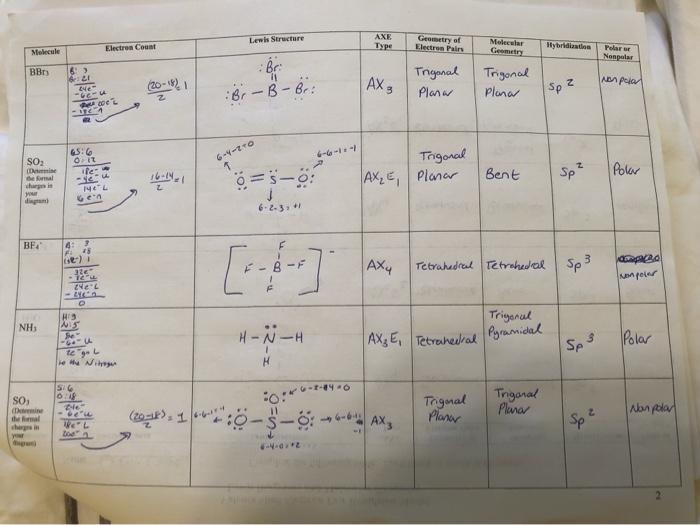 Molecule Electron Count Lewis Structure AXE Type Geometry of Electron Pairs Molecular Geometry Hybridization Polar or Nonpolar
BBr₃
B: 3
Br: 21
24e-
(20-18) = 1
2
:Br:
:Br - B - Br:
AX₃
Trigonal Planar
Trigonal Planar
Sp²
Non polar
SO₂
(Determine the formal charges in your diagram)
S: 6
O: 12
18e-
-4e-u
14e-L
16-14 = 1
2
6-4-2=0
6-6-1=-1
:O = S - O:
6-2-3=+1
AX₂E₁
Trigonal Planar
Bent
Sp²
Polar
BF₄⁻
B: 3
F: 28
(1e-) 1
32e-
-8e-u
24e-L
-24e-n
0
F
F - B - F
F
AX₄
Tetrahedral
Tetrahedral
Sp³
Non polar
NH₃
H: 3
N: 5
8e-
-6e-u
2e- go to the Nitrogen
H - N - H
H
AX₃E₁
Tetrahedral
Trigonal Pyramidal
Sp³
Polar
SO₃
(Determine the formal charges in your diagram)
S: 6
O: 18
24e-
-6e-u
18e-L
(20-18) = 1
2
6-6-1=-1
:O:
:O - S - O:
6-4-0=+2
AX₃
Trigonal Planar
Trigonal Planar
Sp²
Non polar
2